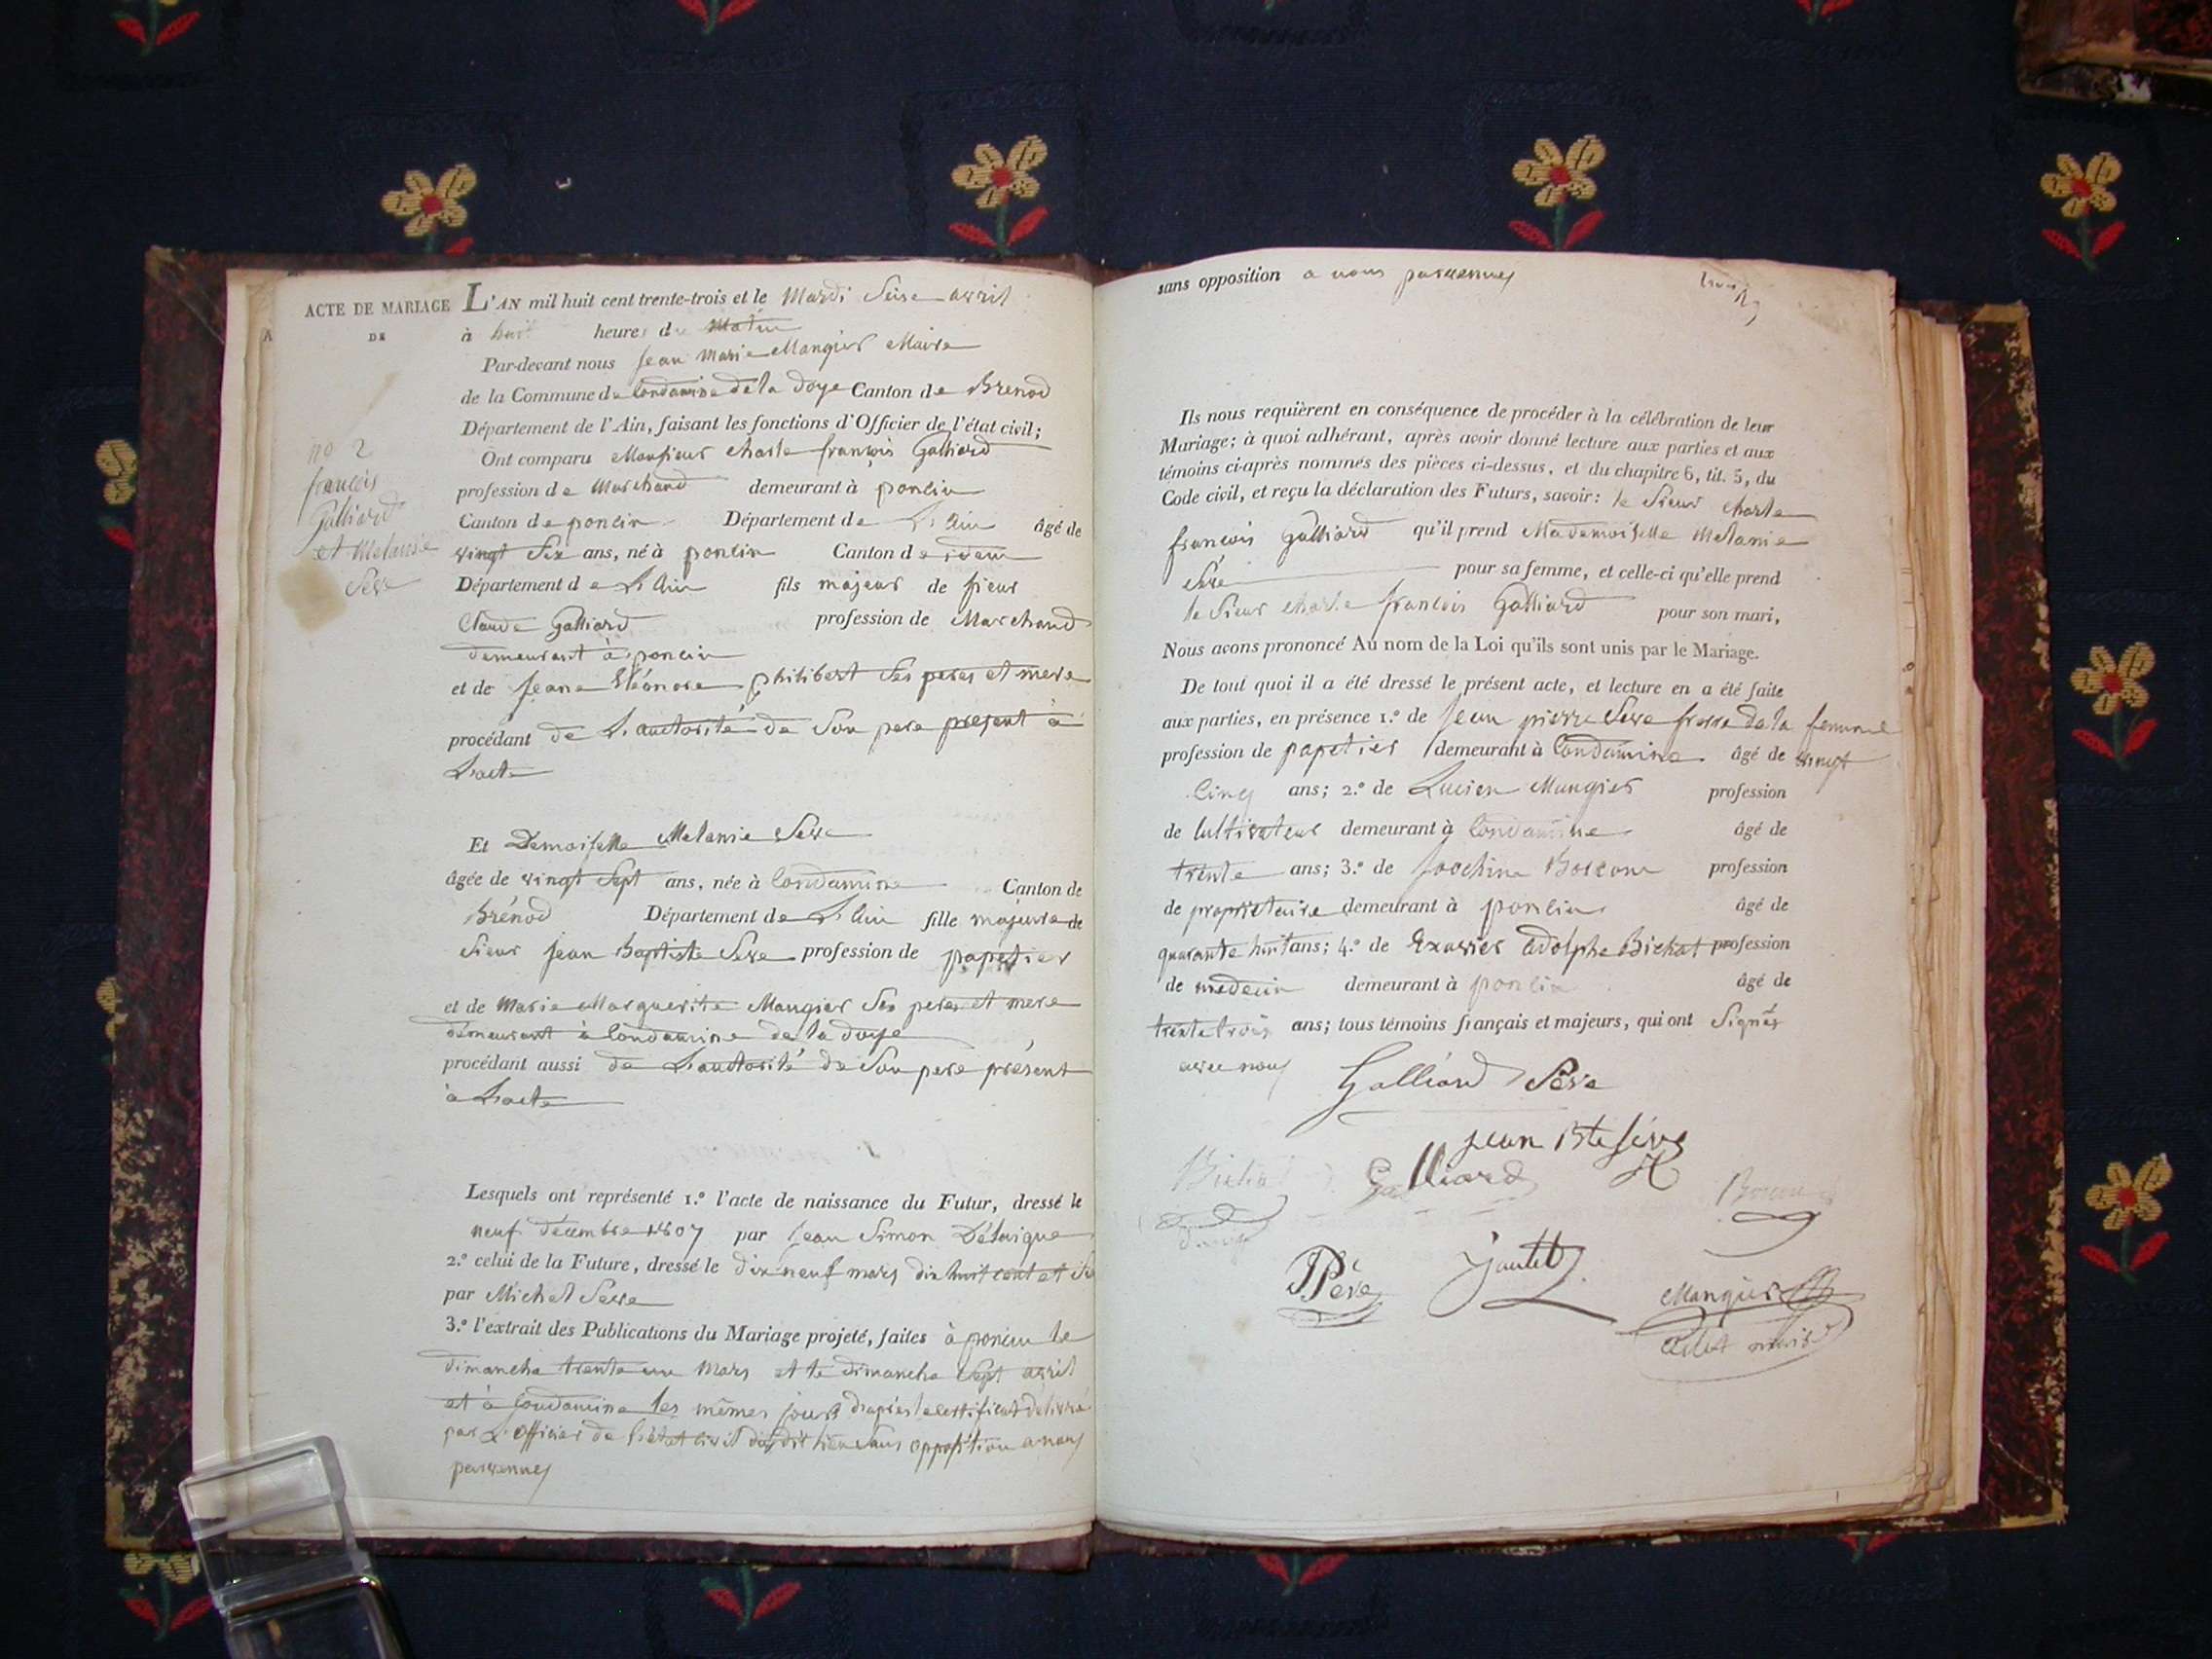 ACTE DE MARIAGE
DE
no 2
francois
Galliard
et Melanie
Seve
L'AN mil huit cent trente-trois et le Mardi Seise avril
à huit heures du Matin
Par-devant nous Jean Marie Mangier Maire
de la Commune de Condamine de la Doye Canton de Brenod
Département de l'Ain, faisant les fonctions d'Officier de l'état civil;
Ont comparu Monsieur Charle françois Galliard
profession de Marchand demeurant à poncin
Canton de poncin Département de L'Ain âgé de
vingt Six ans, né à poncin Canton de idem
Département de L'Ain fils majeur de sieur
Claude Galliard profession de Marchand
demeurant à poncin
et de Jeane Eléonore philibert Ses peres et mere
procédant de L'auctorité de Son pere présent à
L'acte
Et Demoiselle Melanie Seve
âgée de vingt Sept ans, née à Condamine Canton de
Brénod Département de L'Ain fille majeure de
Sieur Jean Baptiste Seve profession de papetier
et de Marie Marguerite Mangier Ses peres et mere
demeurant à Condamine de la doye
procédant aussi de L'auctorité de Son pere présent
à L'acte
Lesquels ont représenté 1.° l'acte de naissance du Futur, dressé le
neuf décembre 1807 par Jean Simon
2.° celui de la Future, dressé le dix neuf mars dix huit cent et Six
par Michel Seve
3.° l'extrait des Publications du Mariage projeté, faites à poncin le
dimanche trente un Mars et le dimanche Sept avril
et à Condamine les mêmes jours d'après le certificat délivré
par L'officier de L'état civil dudit lieu Sans opposition a nous
parvenues
sans opposition a nous parvenues
Ils nous requièrent en conséquence de procéder à la célébration de leur
Mariage; à quoi adhérant, après avoir donné lecture aux parties et aux
témoins ci-après nommés des pièces ci-dessus, et du chapitre 6, tit. 5, du
Code civil, et reçu la déclaration des Futurs, savoir: le Sieur Charle
francois Galliard qu'il prend Mademoiselle Melanie
Séve pour sa femme, et celle-ci qu'elle prend
le Sieur Charle francois Galliard pour son mari,
Nous avons prononcé Au nom de la Loi qu'ils sont unis par le Mariage.
De tout quoi il a été dressé le présent acte, et lecture en a été faite
aux parties, en présence 1.° de Jean pierre Seve frere de la femme
profession de papetier demeurant à Condamine âgé de vingt
Cinq ans; 2.° de Lucien Mangier profession
de Cultivateur demeurant à Condamine âgé de
trente ans; 3.° de profession
de proprietaire demeurant à poncin âgé de
quarante huit ans; 4.° de Exavier Adolphe Bichat profession
de medecin demeurant à poncin âgé de
trente trois ans; tous témoins français et majeurs, qui ont Signés
avec nous
Galliard Séve
Jean Bte Séve
Bichat Galliard
JPSéve
Mangier